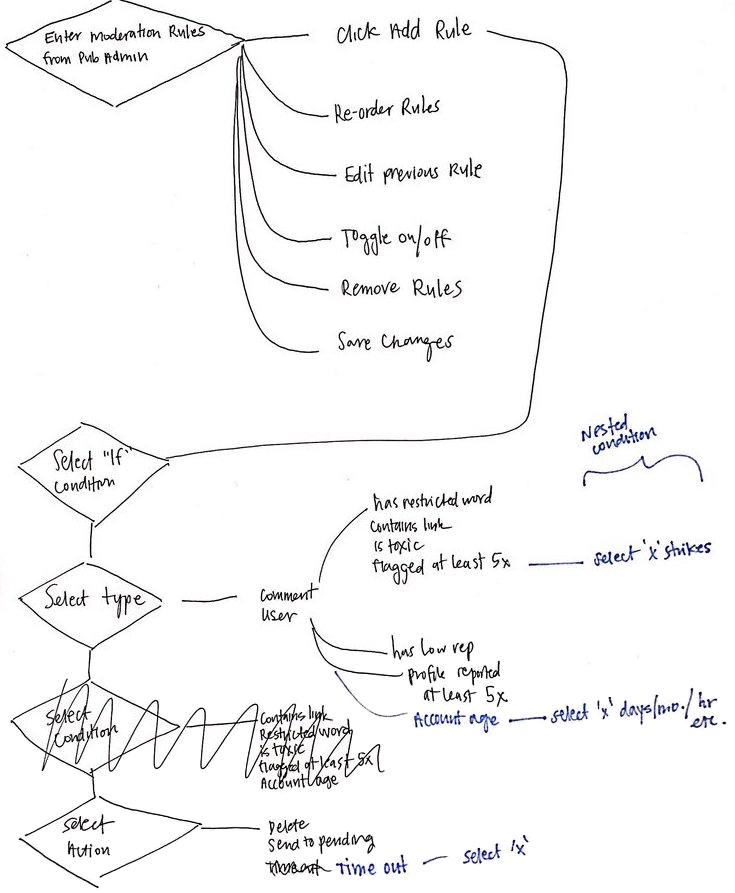 Enter Moderation Rules
from Pub Admin
Click Add Rule
Re-order Rules
Edit previous Rule
Toggle on/off
Remove Rules
Save Changes
Select "If"
Condition
Nested
condition
has restricted word
contains link
is toxic
flagged at least 5x
select 'x' strikes
Select type
comment
user
has low rep
profile reported
at least 5x
Account age
select 'x' days/mo./hr
etc.
Select
Condition
Contains link
Restricted word
is toxic
flagged at least 5x
Account age
Select
Action
Delete
Send to pending
Time out
select 'x'